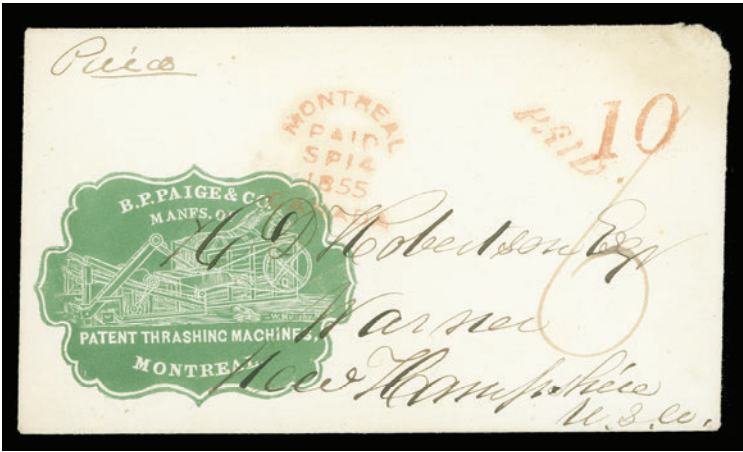 Paid
MONTREAL
PAID
SP 14
1855
CANADA
PAID 10
6
B. P. PAIGE & CO.
MANFS. OF
PATENT THRASHING MACHINES,
MONTREAL
H D Robertson Esq
Warner
New Hampshire
U. S.